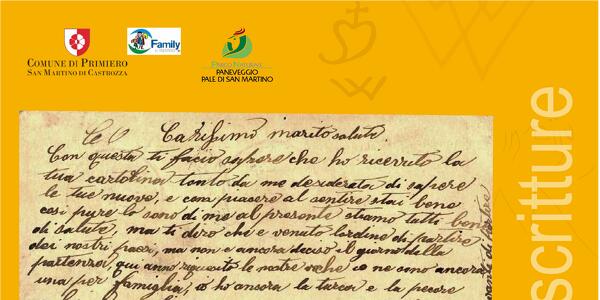 COMUNE DI PRIMIERO
SAN MARTINO DI CASTROZZA
Family
PARCO NATURALE
PANEVEGGIO
PALE DI SAN MARTINO
scritture
Carissimo marito salute
Con questa ti facio sapere che ho ricevuto la
tua cartolina tanto da me desiderata di sapere
le tue nuove, e cara piacere al sentire stai bene
cosi pure lo sono di me al presente stiamo tutti bene
di salute, ma ti dirò chi e venuto lordine di partire
dei nostri paesi, ma non e ancora deciso il giorno della
partenza, qui anno le nostre vache io ne sono ancora
una per famiglia, io ho ancora la e la pecore